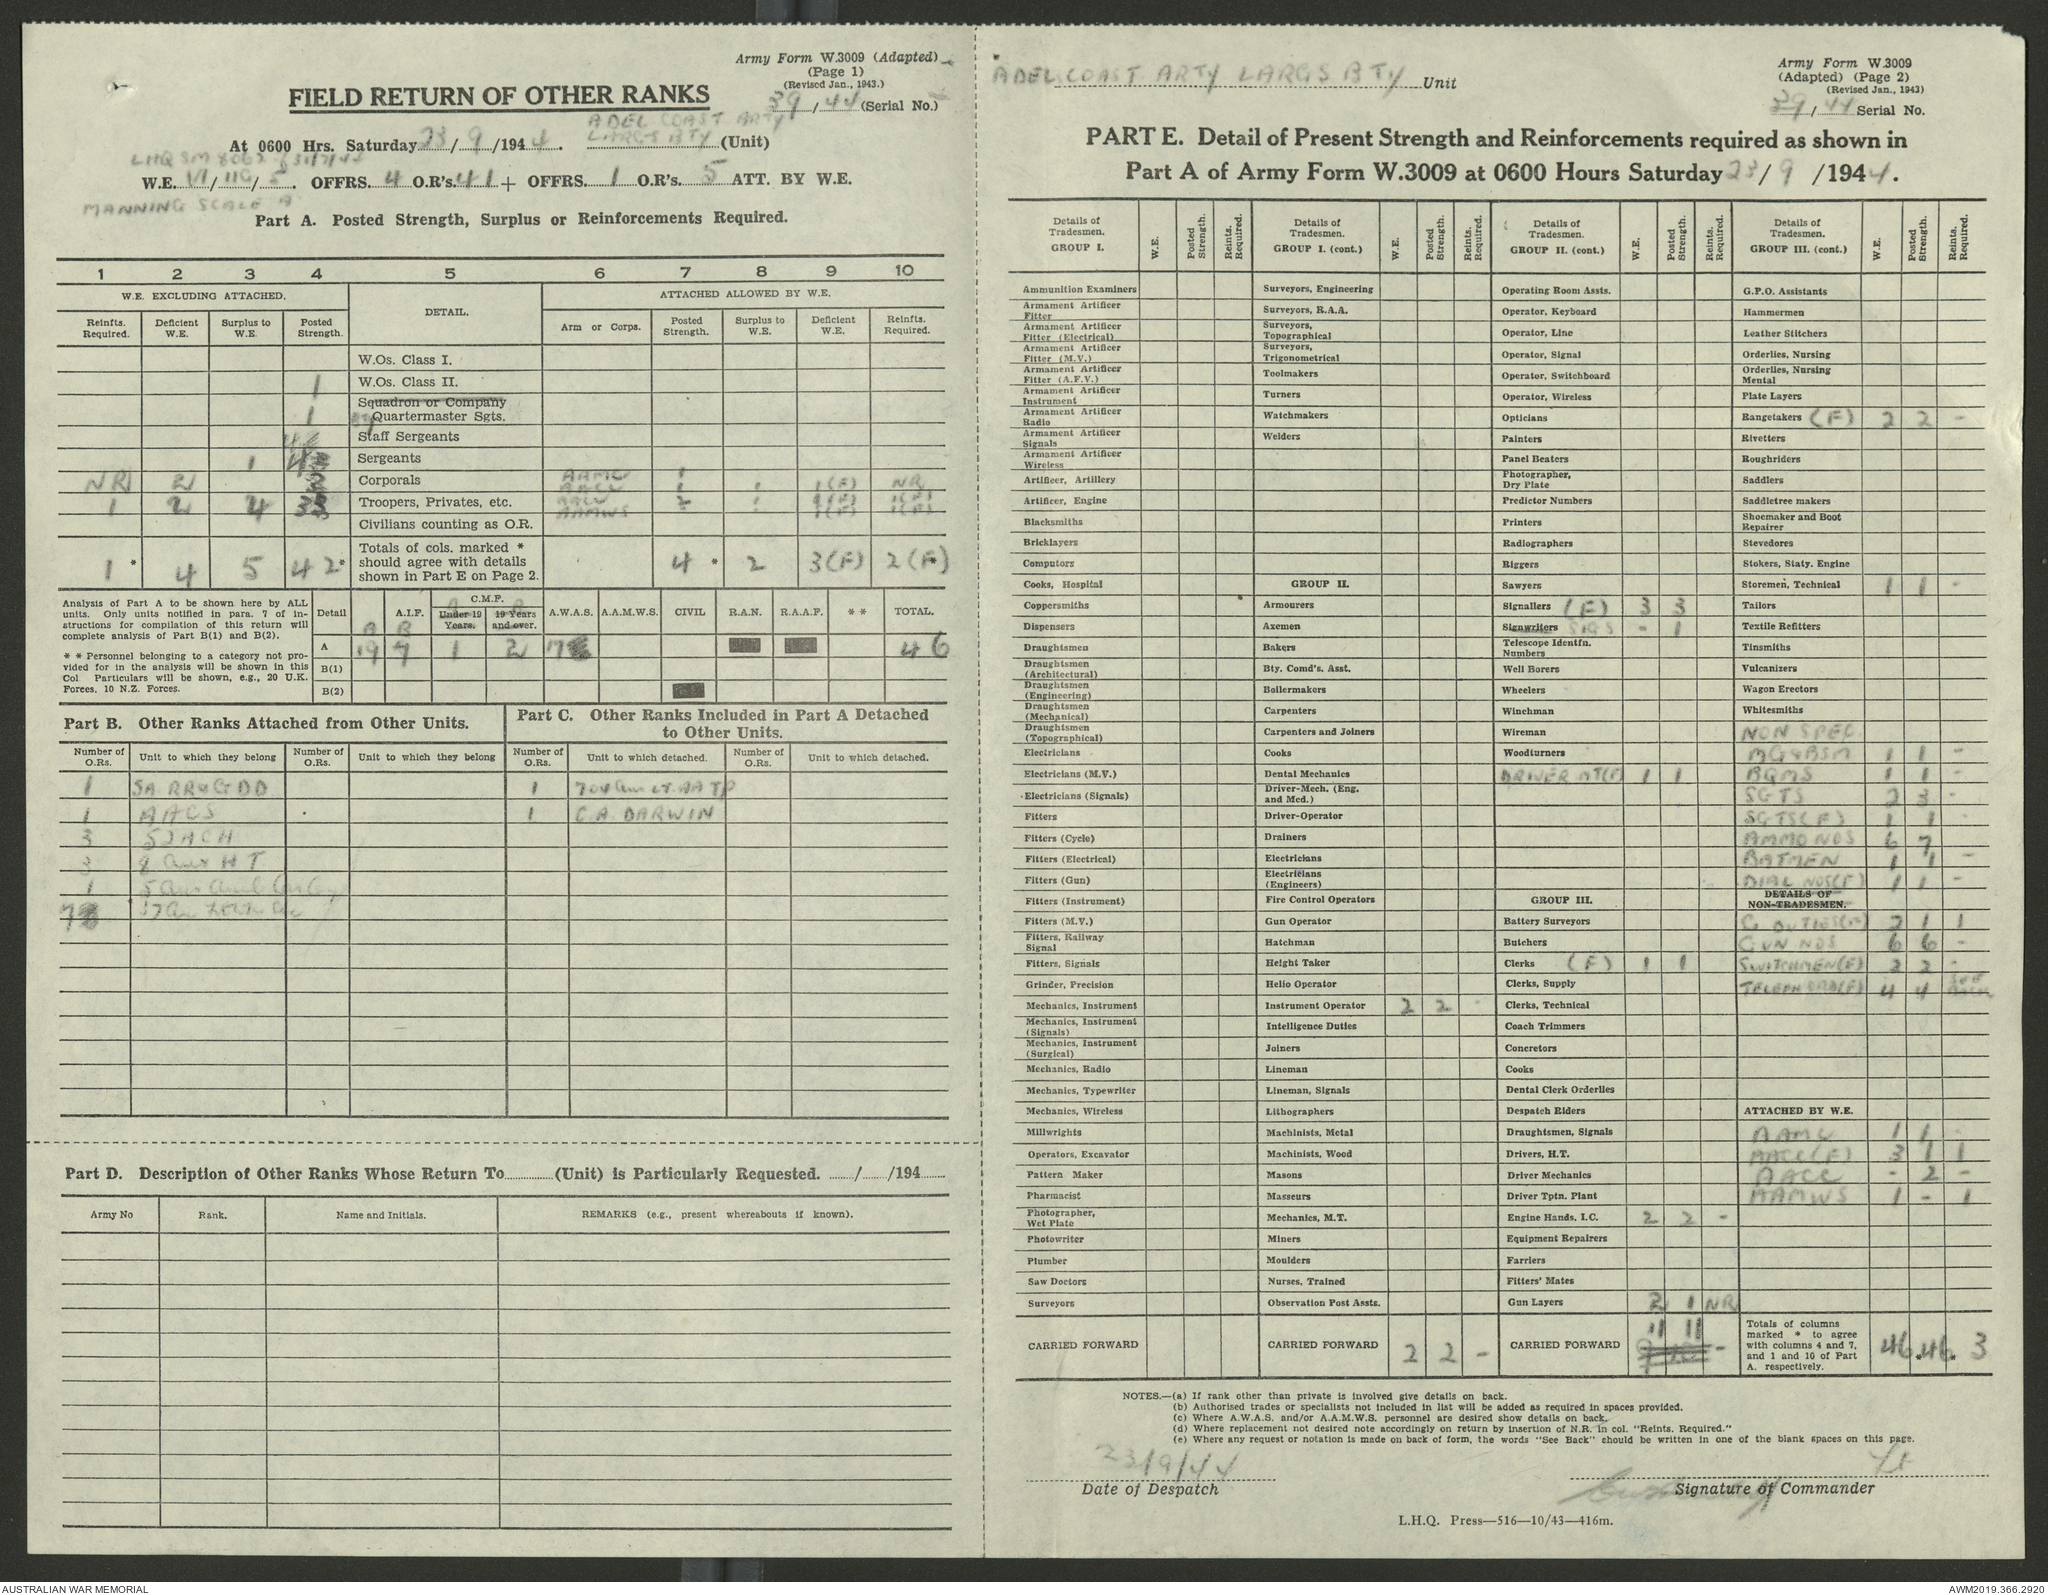 Army Form W.3009 (Adapted)
(Page 1)
(Revised Jan., 1943.)
FIELD RETURN OF OTHER RANKS
39/44 (Serial No.)
ADEL COAST ARTY
At 0600 Hrs. Saturday 23/9/1944. LARGS BTY (Unit)
LHQ SM 8062
W.E. VI/11G/5. OFFRS. 4 O.R's. 41 + OFFRS. 1 O.R's. 5 ATT. BY W.E.
MANNING SCALE A
Part A. Posted Strength, Surplus or Reinforcements Required.
1 2 3 4 5 6 7 8 9 10
W.E. EXCLUDING ATTACHED. DETAIL. ATTACHED ALLOWED BY W.E.
Reinfts. Required. Deficient W.E. Surplus to W.E. Posted Strength. Arm or Corps. Posted Strength. Surplus to W.E. Deficient W.E. Reinfts. Required.
W.Os. Class I.
1 W.Os. Class II.
Squadron or Company
1 Quartermaster Sgts.
Staff Sergeants
1 4 Sergeants
NR 2 Corporals AAMC 1
1 2 4 33 Troopers, Privates, etc.
AAMWS
Civilians counting as O.R.
1* 4 5 42* Totals of cols. marked * should agree with details shown in Part E on Page 2. 4 * 2 3(F) 2(F)
Analysis of Part A to be shown here by ALL units. Only units notified in para. 7 of instructions for compilation of this return will complete analysis of Part B(1) and B(2).
* * Personnel belonging to a category not provided for in the analysis will be shown in this Col Particulars will be shown, e.g., 20 U.K. Forces, 10 N.Z. Forces.
Detail A.I.F. C.M.F. Under 19 Years. 19 Years and over. A.W.A.S. A.A.M.W.S. CIVIL R.A.N. R.A.A.F. * * TOTAL.
A B
A 19 7 1 2 17 46
B(1)
B(2)
Part B. Other Ranks Attached from Other Units.
Number of O.Rs. Unit to which they belong Number of O.Rs. Unit to which they belong
1 SA RR & GDD
1 AACS
3 52 ACH
3 8 Aus H T
1 5 Aus
7
Part C. Other Ranks Included in Part A Detached to Other Units.
Number of O.Rs. Unit to which detached. Number of O.Rs. Unit to which detached.
1
1 C.A. DARWIN
Part D. Description of Other Ranks Whose Return To (Unit) is Particularly Requested. / /194
Army No Rank. Name and Initials. REMARKS (e.g., present whereabouts if known).
ADEL COAST ARTY LARGS BTY Unit
Army Form W.3009
(Adapted) (Page 2)
(Revised Jan., 1943)
39/44 Serial No.
PART E. Detail of Present Strength and Reinforcements required as shown in
Part A of Army Form W.3009 at 0600 Hours Saturday 23/9/1944.
Details of Tradesmen. GROUP I. W.E. Posted Strength. Reints. Required.
Ammunition Examiners
Armament Artificer Fitter
Armament Artificer Fitter (Electrical)
Armament Artificer Fitter (M.V.)
Armament Artificer Fitter (A.F.V.)
Armament Artificer Instrument
Armament Artificer Radio
Armament Artificer Signals
Armament Artificer Wireless
Artificer, Artillery
Artificer, Engine
Blacksmiths
Bricklayers
Computors
Cooks, Hospital
Coppersmiths
Dispensers
Draughtsmen
Draughtsmen (Architectural)
Draughtsmen (Engineering)
Draughtsmen (Mechanical)
Draughtsmen (Topographical)
Electricians
Electricians (M.V.)
Electricians (Signals)
Fitters
Fitters (Cycle)
Fitters (Electrical)
Fitters (Gun)
Fitters (Instrument)
Fitters (M.V.)
Fitters, Railway Signal
Fitters, Signals
Grinder, Precision
Mechanics, Instrument
Mechanics, Instrument (Signals)
Mechanics, Instrument (Surgical)
Mechanics, Radio
Mechanics, Typewriter
Mechanics, Wireless
Millwrights
Operators, Excavator
Pattern Maker
Pharmacist
Photographer, Wet Plate
Photowriter
Plumber
Saw Doctors
Surveyors
CARRIED FORWARD
Details of Tradesmen. GROUP I. (cont.) W.E. Posted Strength. Reints. Required.
Surveyors, Engineering
Surveyors, R.A.A.
Surveyors, Topographical
Surveyors, Trigonometrical
Toolmakers
Turners
Watchmakers
Welders
GROUP II.
Armourers
Axemen
Bakers
Bty. Comd's. Asst.
Boilermakers
Carpenters
Carpenters and Joiners
Cooks
Dental Mechanics
Driver-Mech. (Eng. and Med.)
Driver-Operator
Drainers
Electricians
Electricians (Engineers)
Fire Control Operators
Gun Operator
Hatchman
Height Taker
Helio Operator
Instrument Operator 2 2 -
Intelligence Duties
Joiners
Lineman
Lineman, Signals
Lithographers
Machinists, Metal
Machinists, Wood
Masons
Masseurs
Mechanics, M.T.
Miners
Moulders
Nurses, Trained
Observation Post Assts.
CARRIED FORWARD 2 2 -
Details of Tradesmen. GROUP II. (cont.) W.E. Posted Strength. Reints. Required.
Operating Room Assts.
Operator, Keyboard
Operator, Line
Operator, Signal
Operator, Switchboard
Operator, Wireless
Opticians
Painters
Panel Beaters
Photographer, Dry Plate
Predictor Numbers
Printers
Radiographers
Riggers
Sawyers
Signallers (F) 3 3
Signwriters SIGS - 1
Telescope Identfn. Numbers
Well Borers
Wheelers
Winchman
Wireman
Woodturners
DRIVER MT(F) 1 1
GROUP III.
Battery Surveyors
Butchers
Clerks (F) 1 1
Clerks, Supply
Clerks, Technical
Coach Trimmers
Concretors
Cooks
Dental Clerk Orderlies
Despatch Riders
Draughtsmen, Signals
Drivers, H.T.
Driver Mechanics
Driver Tptn. Plant
Engine Hands, I.C. 2 2 -
Equipment Repairers
Farriers
Fitters' Mates
Gun Layers 2 1 NR
CARRIED FORWARD 11 11 -
Details of Tradesmen. GROUP III. (cont.) W.E. Posted Strength. Reints Required.
G.P.O. Assistants
Hammermen
Leather Stitchers
Orderlies, Nursing
Orderlies, Nursing Mental
Plate Layers
Rangetakers (F) 2 2 -
Rivetters
Roughriders
Saddlers
Saddletree makers
Shoemaker and Boot Repairer
Stevedores
Stokers, Staty. Engine
Storemen, Technical 1 1 -
Tailors
Textile Refitters
Tinsmiths
Vulcanizers
Wagon Erectors
Whitesmiths
NON SPEC.
MG & BSM 1 1 -
BQMS 1 1 -
SGTS 2 3 -
SGTS (F) 1 1
AMMO NOS 6 7
BATMEN 1 1 -
DIAL NOS (F) 1 1 -
DETAILS OF NON-TRADESMEN.
G DUTIES (F) 2 1 1
GUN NOS 6 6 -
SWITCHMEN (F) 2 2 -
TELEPH ORD (F) 4 4 SEE BACK
ATTACHED BY W.E.
AAMC 1 1
AACC (F) 3 1 1
AACC - 2 -
AAMWS 1 - 1
Totals of columns marked * to agree with columns 4 and 7, and 1 and 10 of Part A. respectively. 46 * 46 * 3
NOTES.—(a) If rank other than private is involved give details on back.
(b) Authorised trades or specialists not included in list will be added as required in spaces provided.
(c) Where A.W.A.S. and/or A.A.M.W.S. personnel are desired show details on back.
(d) Where replacement not desired note accordingly on return by insertion of N.R. in col. "Reints. Required."
(e) Where any request or notation is made on back of form, the words "See Back" should be written in one of the blank spaces on this page.
23/9/44 Lt
Date of Despatch Signature of Commander
L.H.Q. Press—516—10/43—416m.
AUSTRALIAN WAR MEMORIAL AWM2019.366.2920